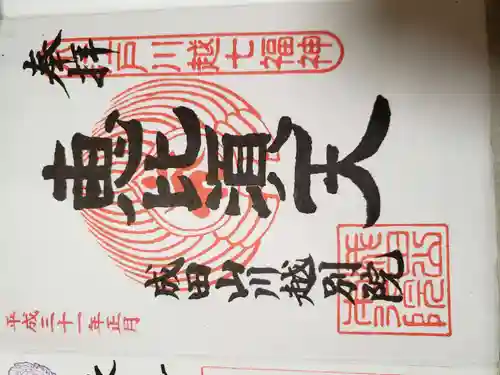 奉拝
小江戸川越七福神
恵比須天
成田山川越別院
平成三十一年正月